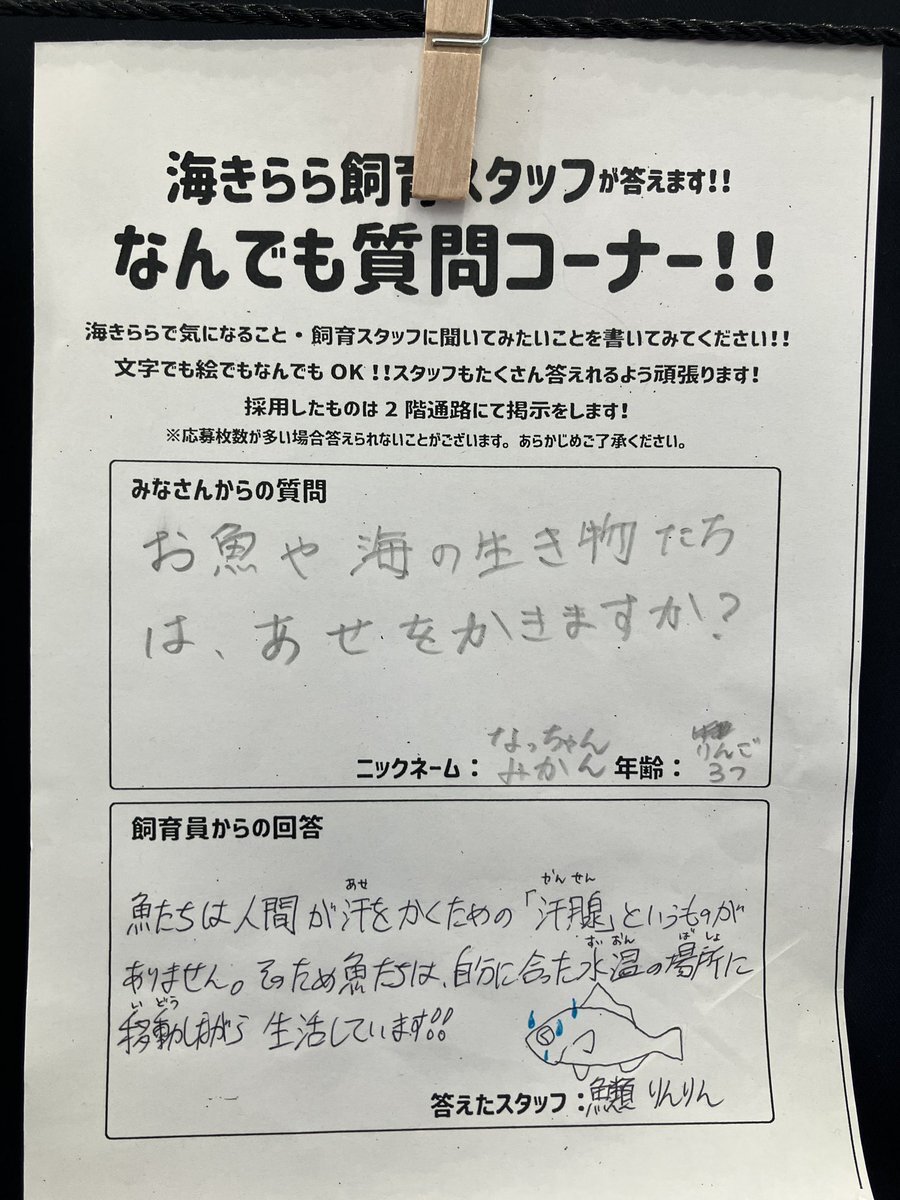 海きらら飼育スタッフが答えます!!
なんでも質問コーナー!!
海きららで気になること・飼育スタッフに聞いてみたいことを書いてみてください!!
文字でも絵でもなんでも OK!!スタッフもたくさん答えれるよう頑張ります!
採用したものは 2 階通路にて掲示をします!
※応募枚数が多い場合答えられないことがございます。あらかじめご了承ください。
みなさんからの質問
お魚や海の生き物たち
は、あせをかきますか?
ニックネーム: なっちゃん みかん 年齢: りんご 3つ
飼育員からの回答
魚たちは人間が汗をかくための「汗腺」というものが
あせ かんせん
ありません。そのため魚たちは、自分に合った水温の場所に
すいおん ばしょ
移動しながら 生活しています!!
いどう
答えたスタッフ:魚類 りんりん